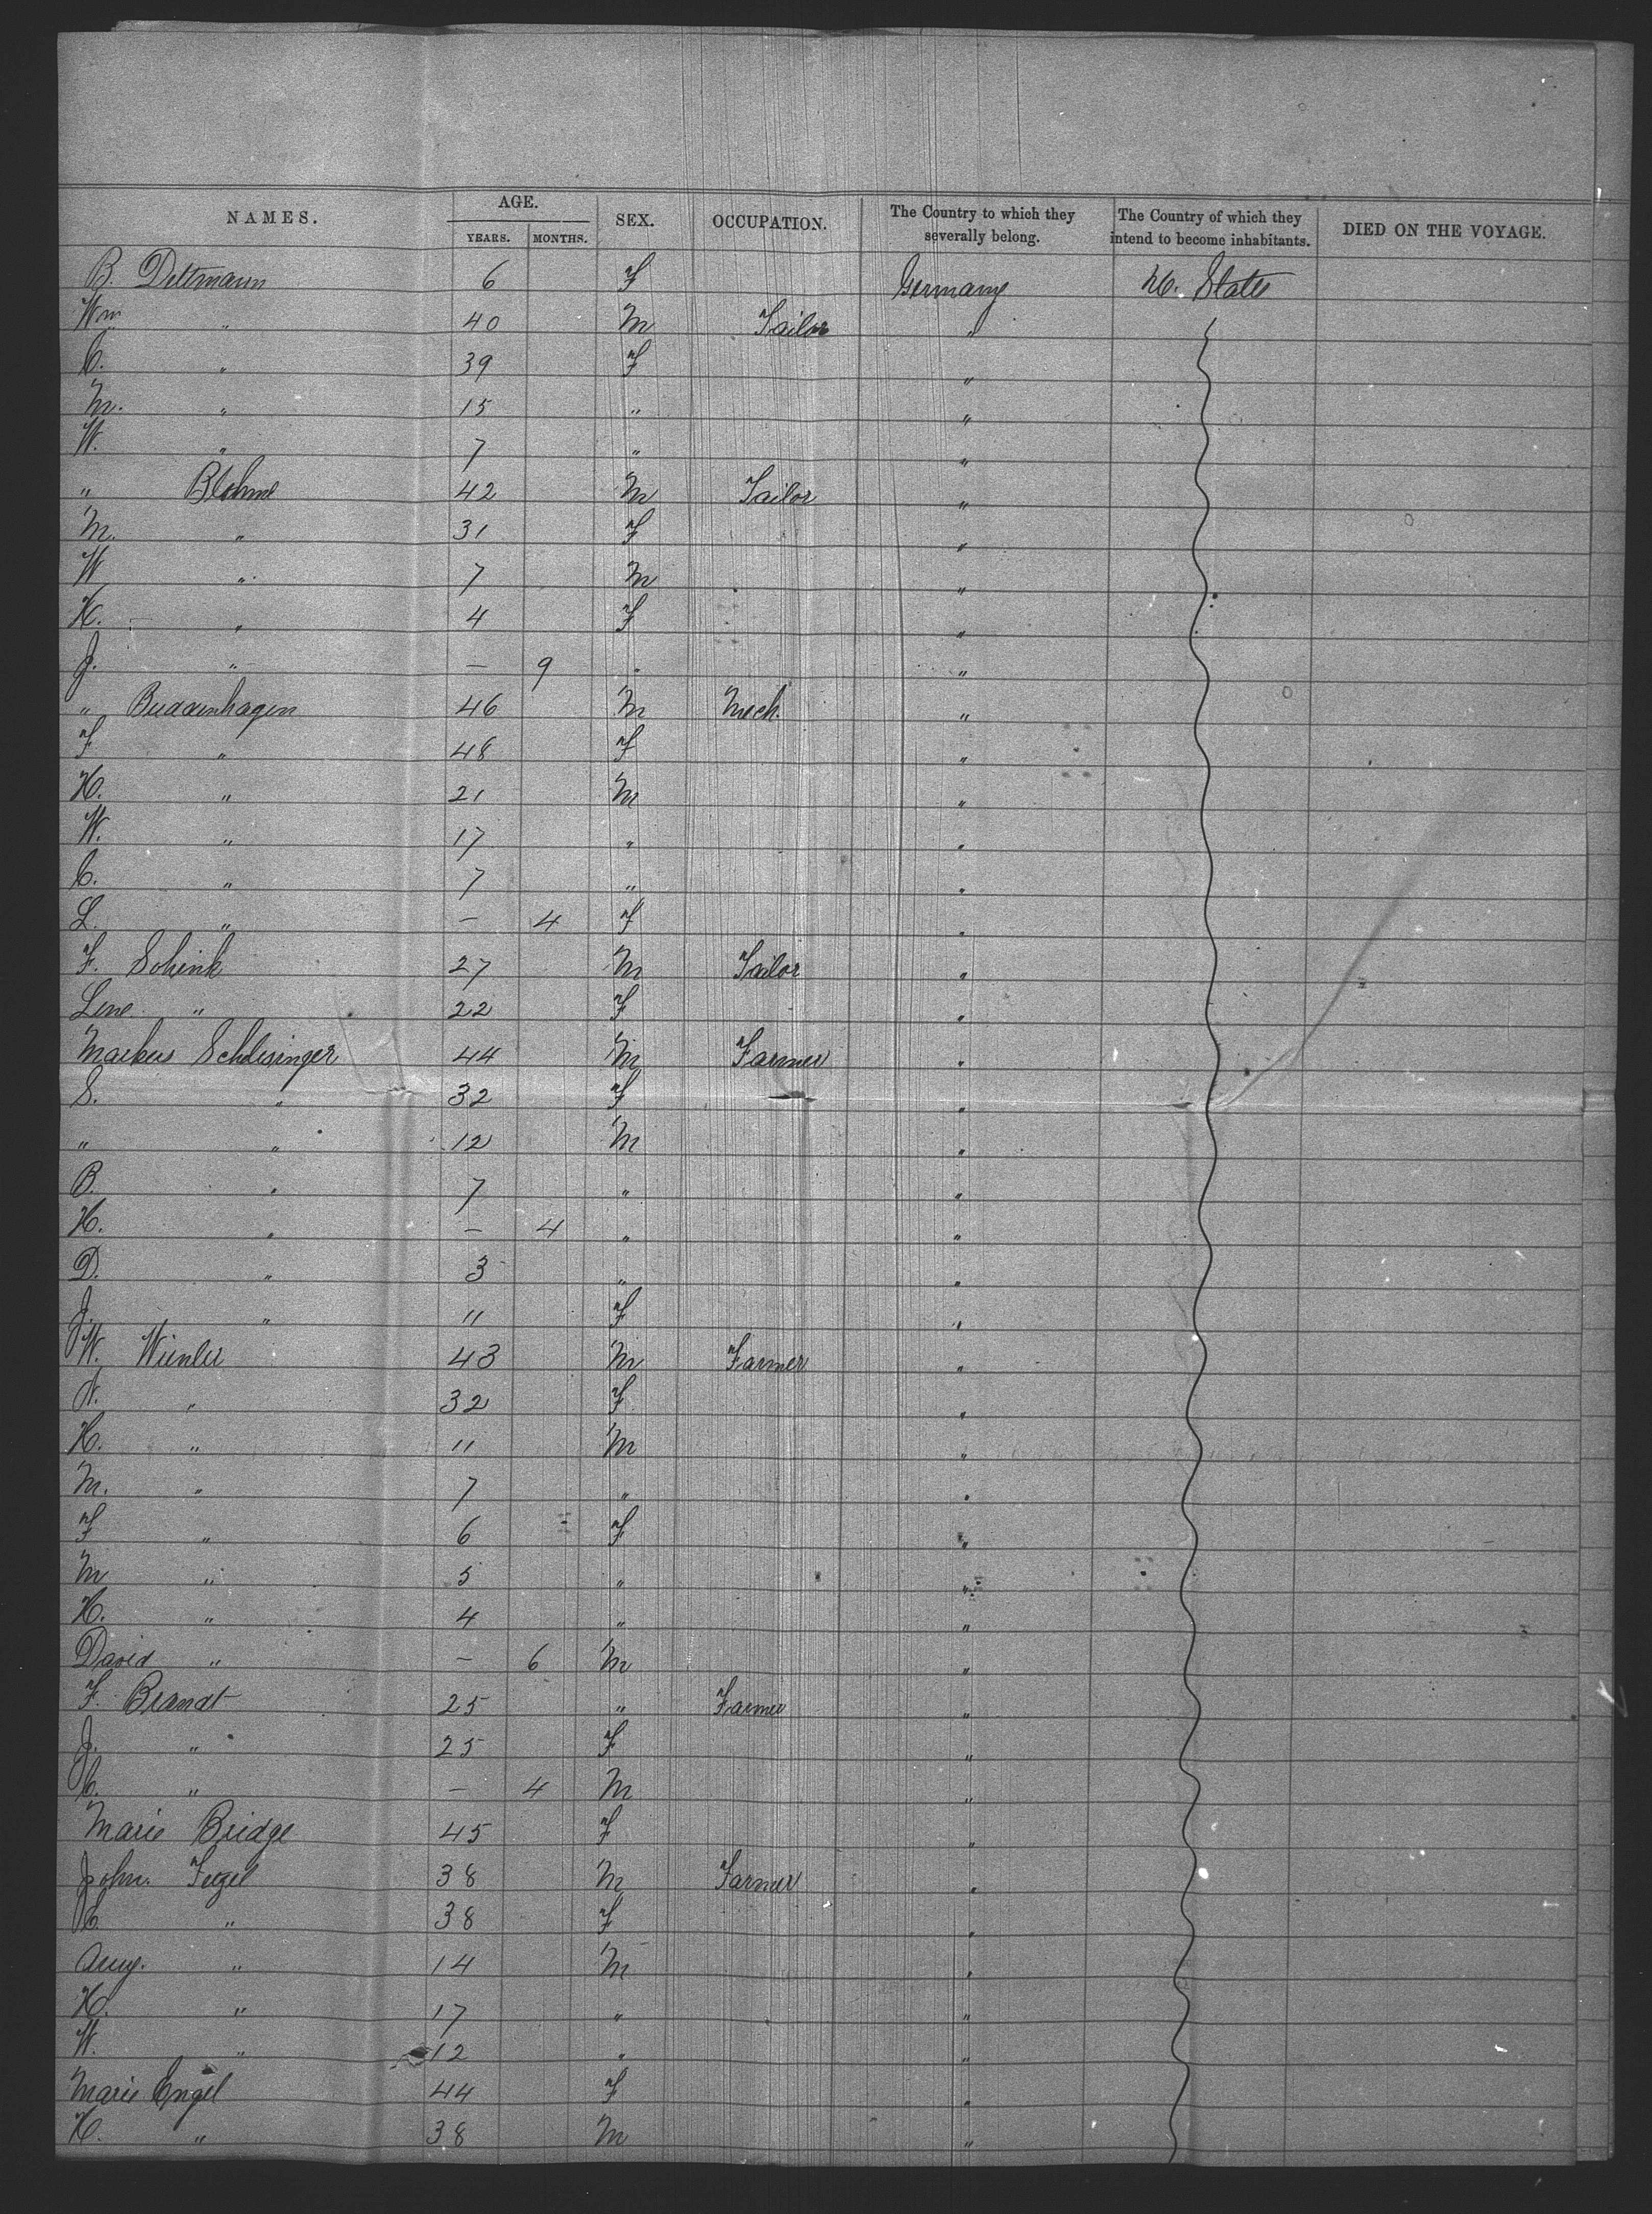 NAMES. AGE. SEX. OCCUPATION. The Country to which they severally belong. The Country of which they intend to become inhabitants. DIED ON THE VOYAGE.
YEARS. MONTHS.
B. Dettmann 6 F Germany U. States
Wm " 40 M Tailor "
C. " 39 F "
M. " 15 " "
W. " 7 " "
" Blohme 42 M Tailor "
M. " 31 F "
W " 7 M "
H. " 4 F "
J. " — 9 " "
" Buddenhagen 46 M Mech. "
F " 48 F "
H. " 21 M "
W. " 17 " "
C. " 7 " "
L. " — 4 F "
F. Schink 27 M Tailor "
Line " 22 F "
Markus Schlesinger 44 M Farmer "
S. " 32 F "
" " 12 M "
B. " 7 " "
H. " — 4 " "
D. " 3 " "
J. " 11 F "
W. 43 M Farmer "
N. " 32 F "
H. " 11 M "
M. " 7 " "
F " 6 F "
M " 5 " "
H. " 4 " "
David " — 6 M "
F. Brandt 25 " Farmer "
J. " 25 F "
C. " — 4 M "
Marie Bridge 45 F "
John. Fegel 38 M Farmer "
C. " 38 F "
Aug. " 14 M "
H. " 17 " "
W. " 12 " "
Marie Engel 44 F "
H. " 38 M "